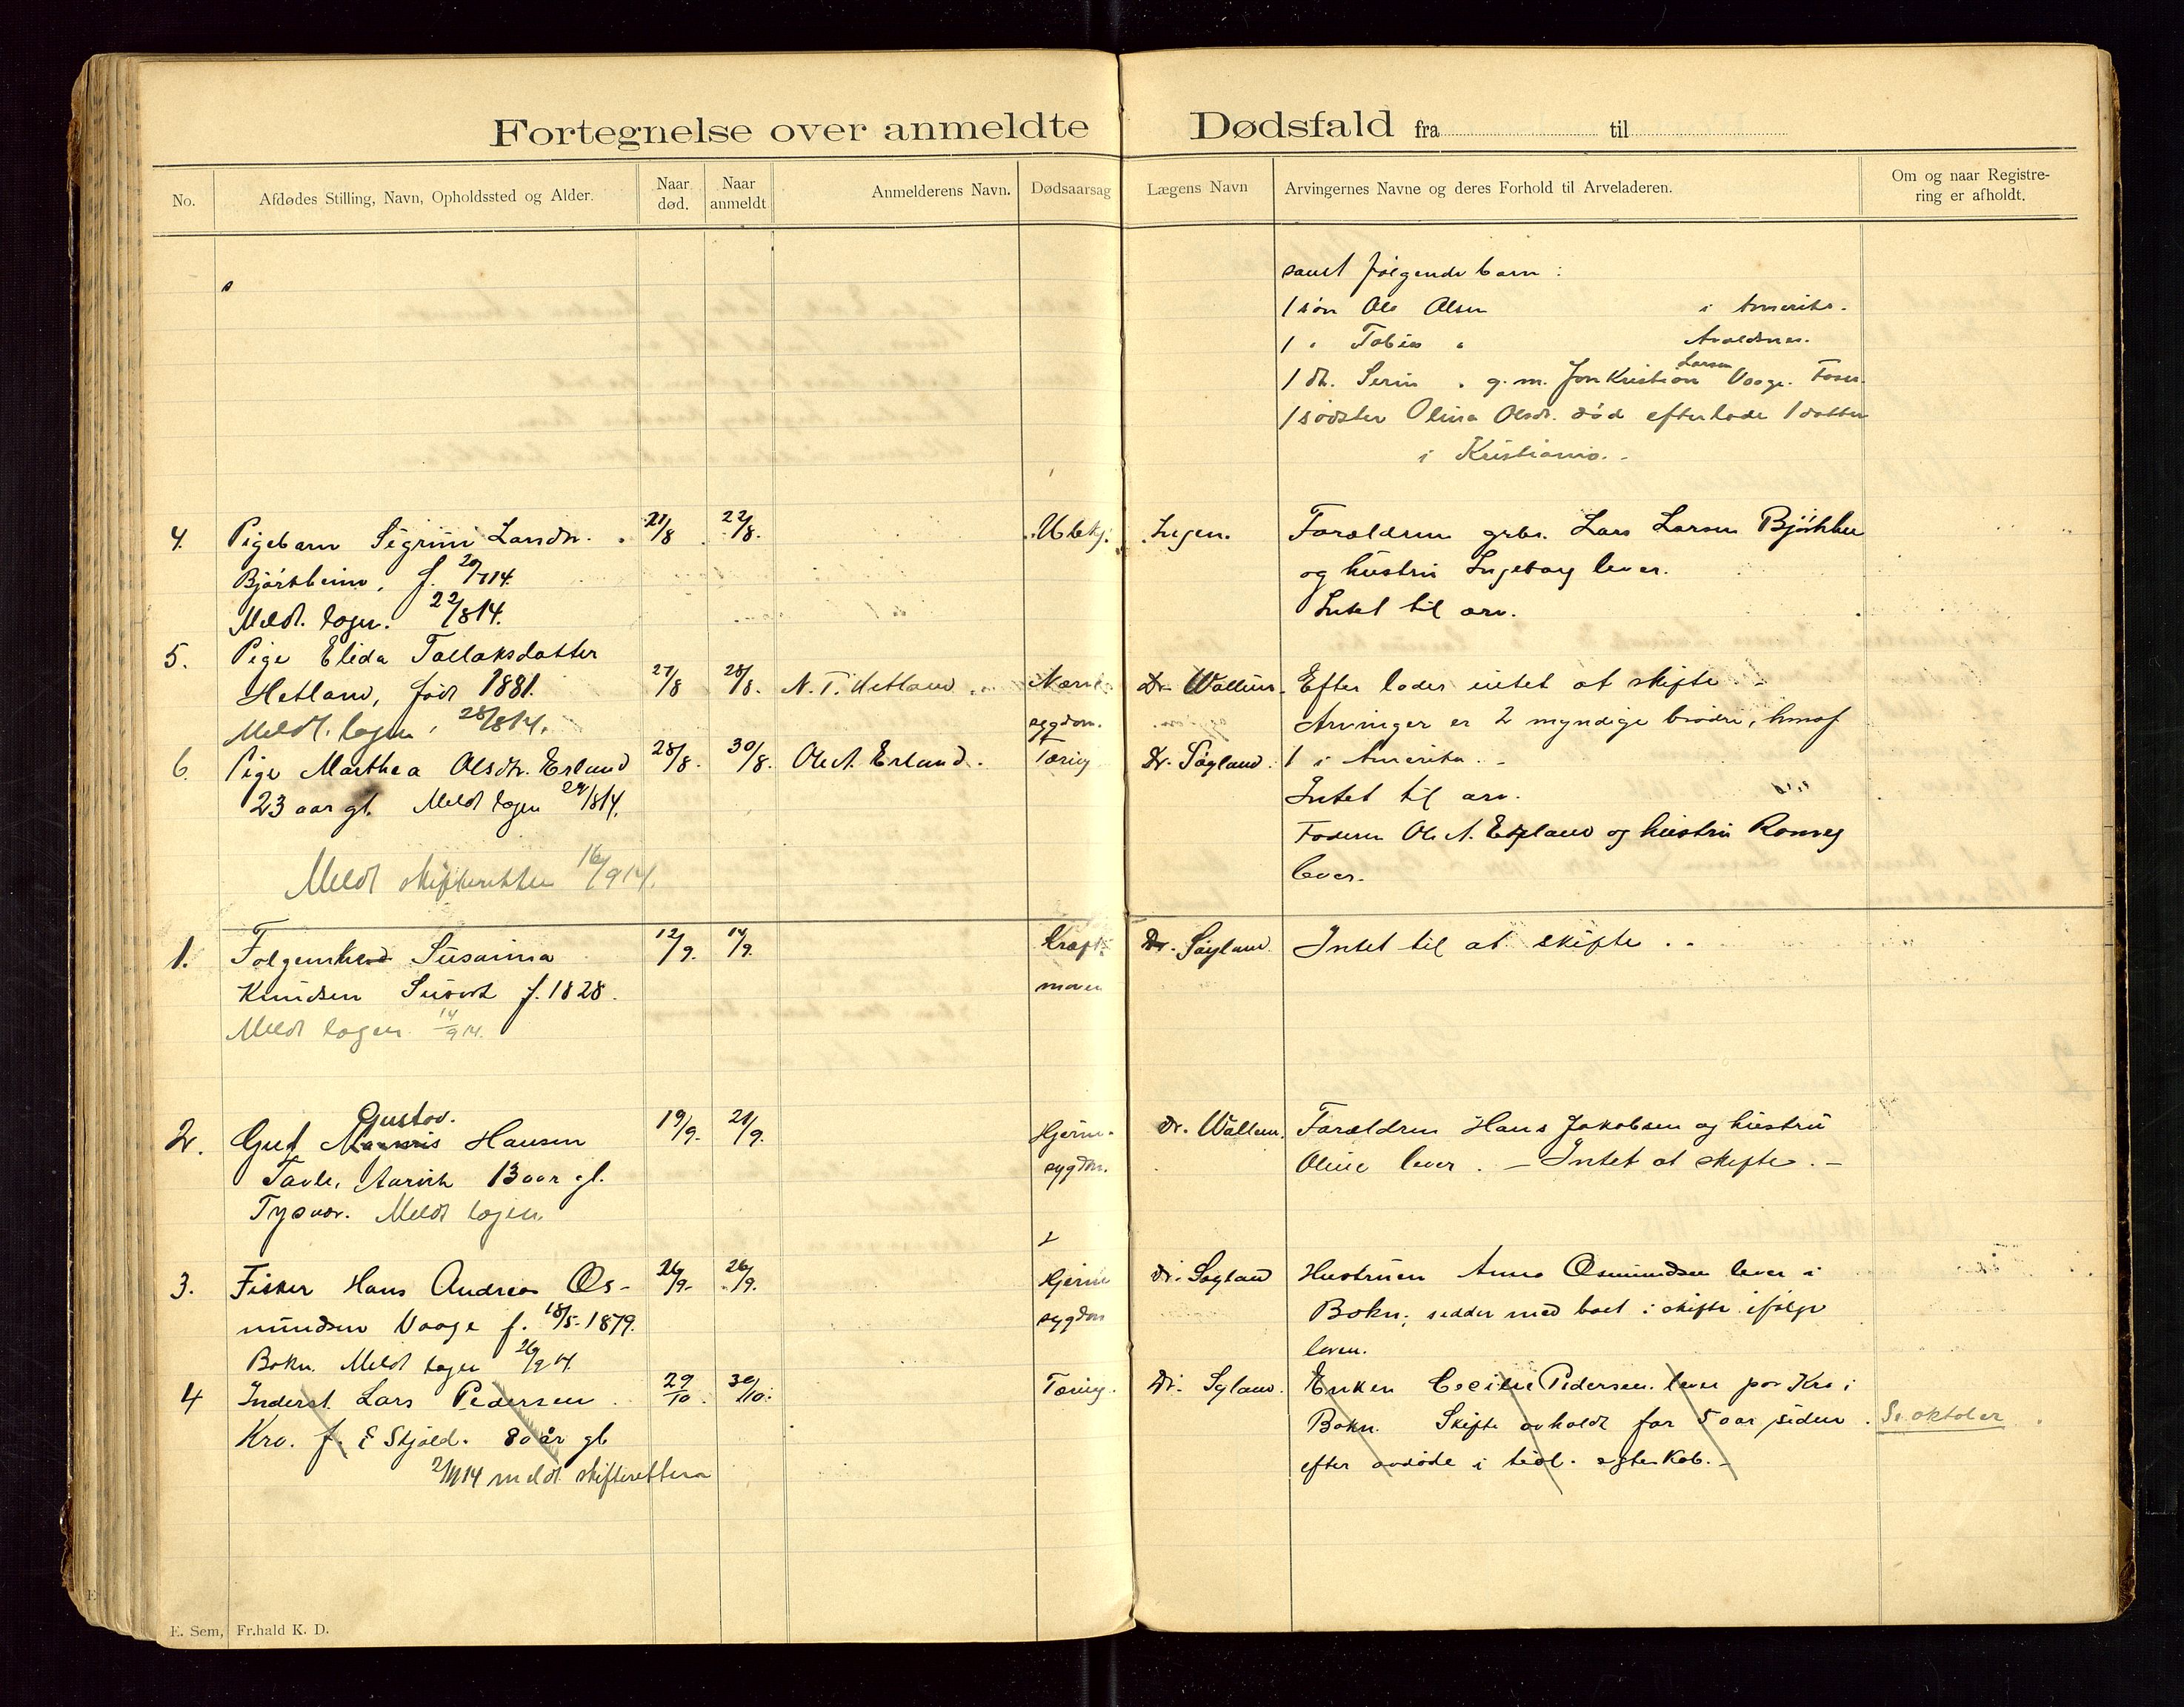 Fortegnelse over anmeldte Dødsfald fra til
No. Afdødes Stilling, Navn, Opholdssted og Alder. Naar død. Naar anmeldt Anmelderens Navn. Dødsaarsag Lægens Navn Arvingernes Navne og deres Forhold til Arveladeren. Om og naar Registrering er afholdt.
samt følgende barn:
1 søn Ole Olsen i Amerika.
1 " Tobias " Avaldsnes.
1 dt. Serine " g. m. Jon Kristian Larsen Vaage. Fosen
1 søster Olina Olsdt. død efterlode 1 datter
i Kristiania. -
4. Pigebarn Sigrun Larsdtr. 21/8 22/8. Ubekj. Ingen. Forældrene grbr. Lars Larsen
Bjørkheim, f. 20/7 14. og hustru Ingeborg lever.
Meldt lagen. 22/8 14. Intet til arv.
5. Pige Elida Tallaksdatter
Hetland, født 1881. 27/8 28/8. N. T. Hetland Nerve- Dr. Wallum. Efter lader intet at skifte. -
Meldt. lagen. 28/8 14. sygdom. Arvinger er 2 myndige brødre, hvoraf
6. Pige Marthea Olsdtr. Erland 28/8. 30/8. Ole A. Erland. Tæring Dr. Søyland. 1 i Amerika. -
23 aar gl. Meldt lagen /8 14. Intet til arv.
Faderen Ole A. Erland og hustru
Meldt skifteretten 16/9 14. lever.
1. Susanna 12/9. 14/9. Kræft i Dr. Søyland. Intet til at skifte. -
Knudsen f. 1828. maven
Meldt lagen. 14/9 14.
Gustav.
2. Gut Hansen 19/9. 21/9. Hjerne- Dr. Wallum. Forældrene Hans Jakobsen og hustru
Aarvik 13 aar gl. sygdom. Oline lever. - Intet at skifte. -
Tysvær. Meldt lagen.
3. Fisker Hans Andreas Os- 26/9. 26/9. Hjerne Dr. Søyland Hustruen Anna Osmundsen lever i
mundsen Vaage f. 18/5-1879. sygdom Bokn; sidder med boet i skifte ifølge
Bokn. Meldt lagen 26/9 14. loven.
4 Inderst. Lars Pedersen 29/10. 30/10. Tæring. Dr. Søyland. Enken Cecilie Pedersen lever paa Kro i
Kro. f. i Skjold. 80 år gl. Bokn. Skifte avholdt for 5 aar siden. Se oktober
2/11 14 meldt skifteretten efter avdøde i tidl. egteskab. -
E. Sem, Fr.hald K. D.